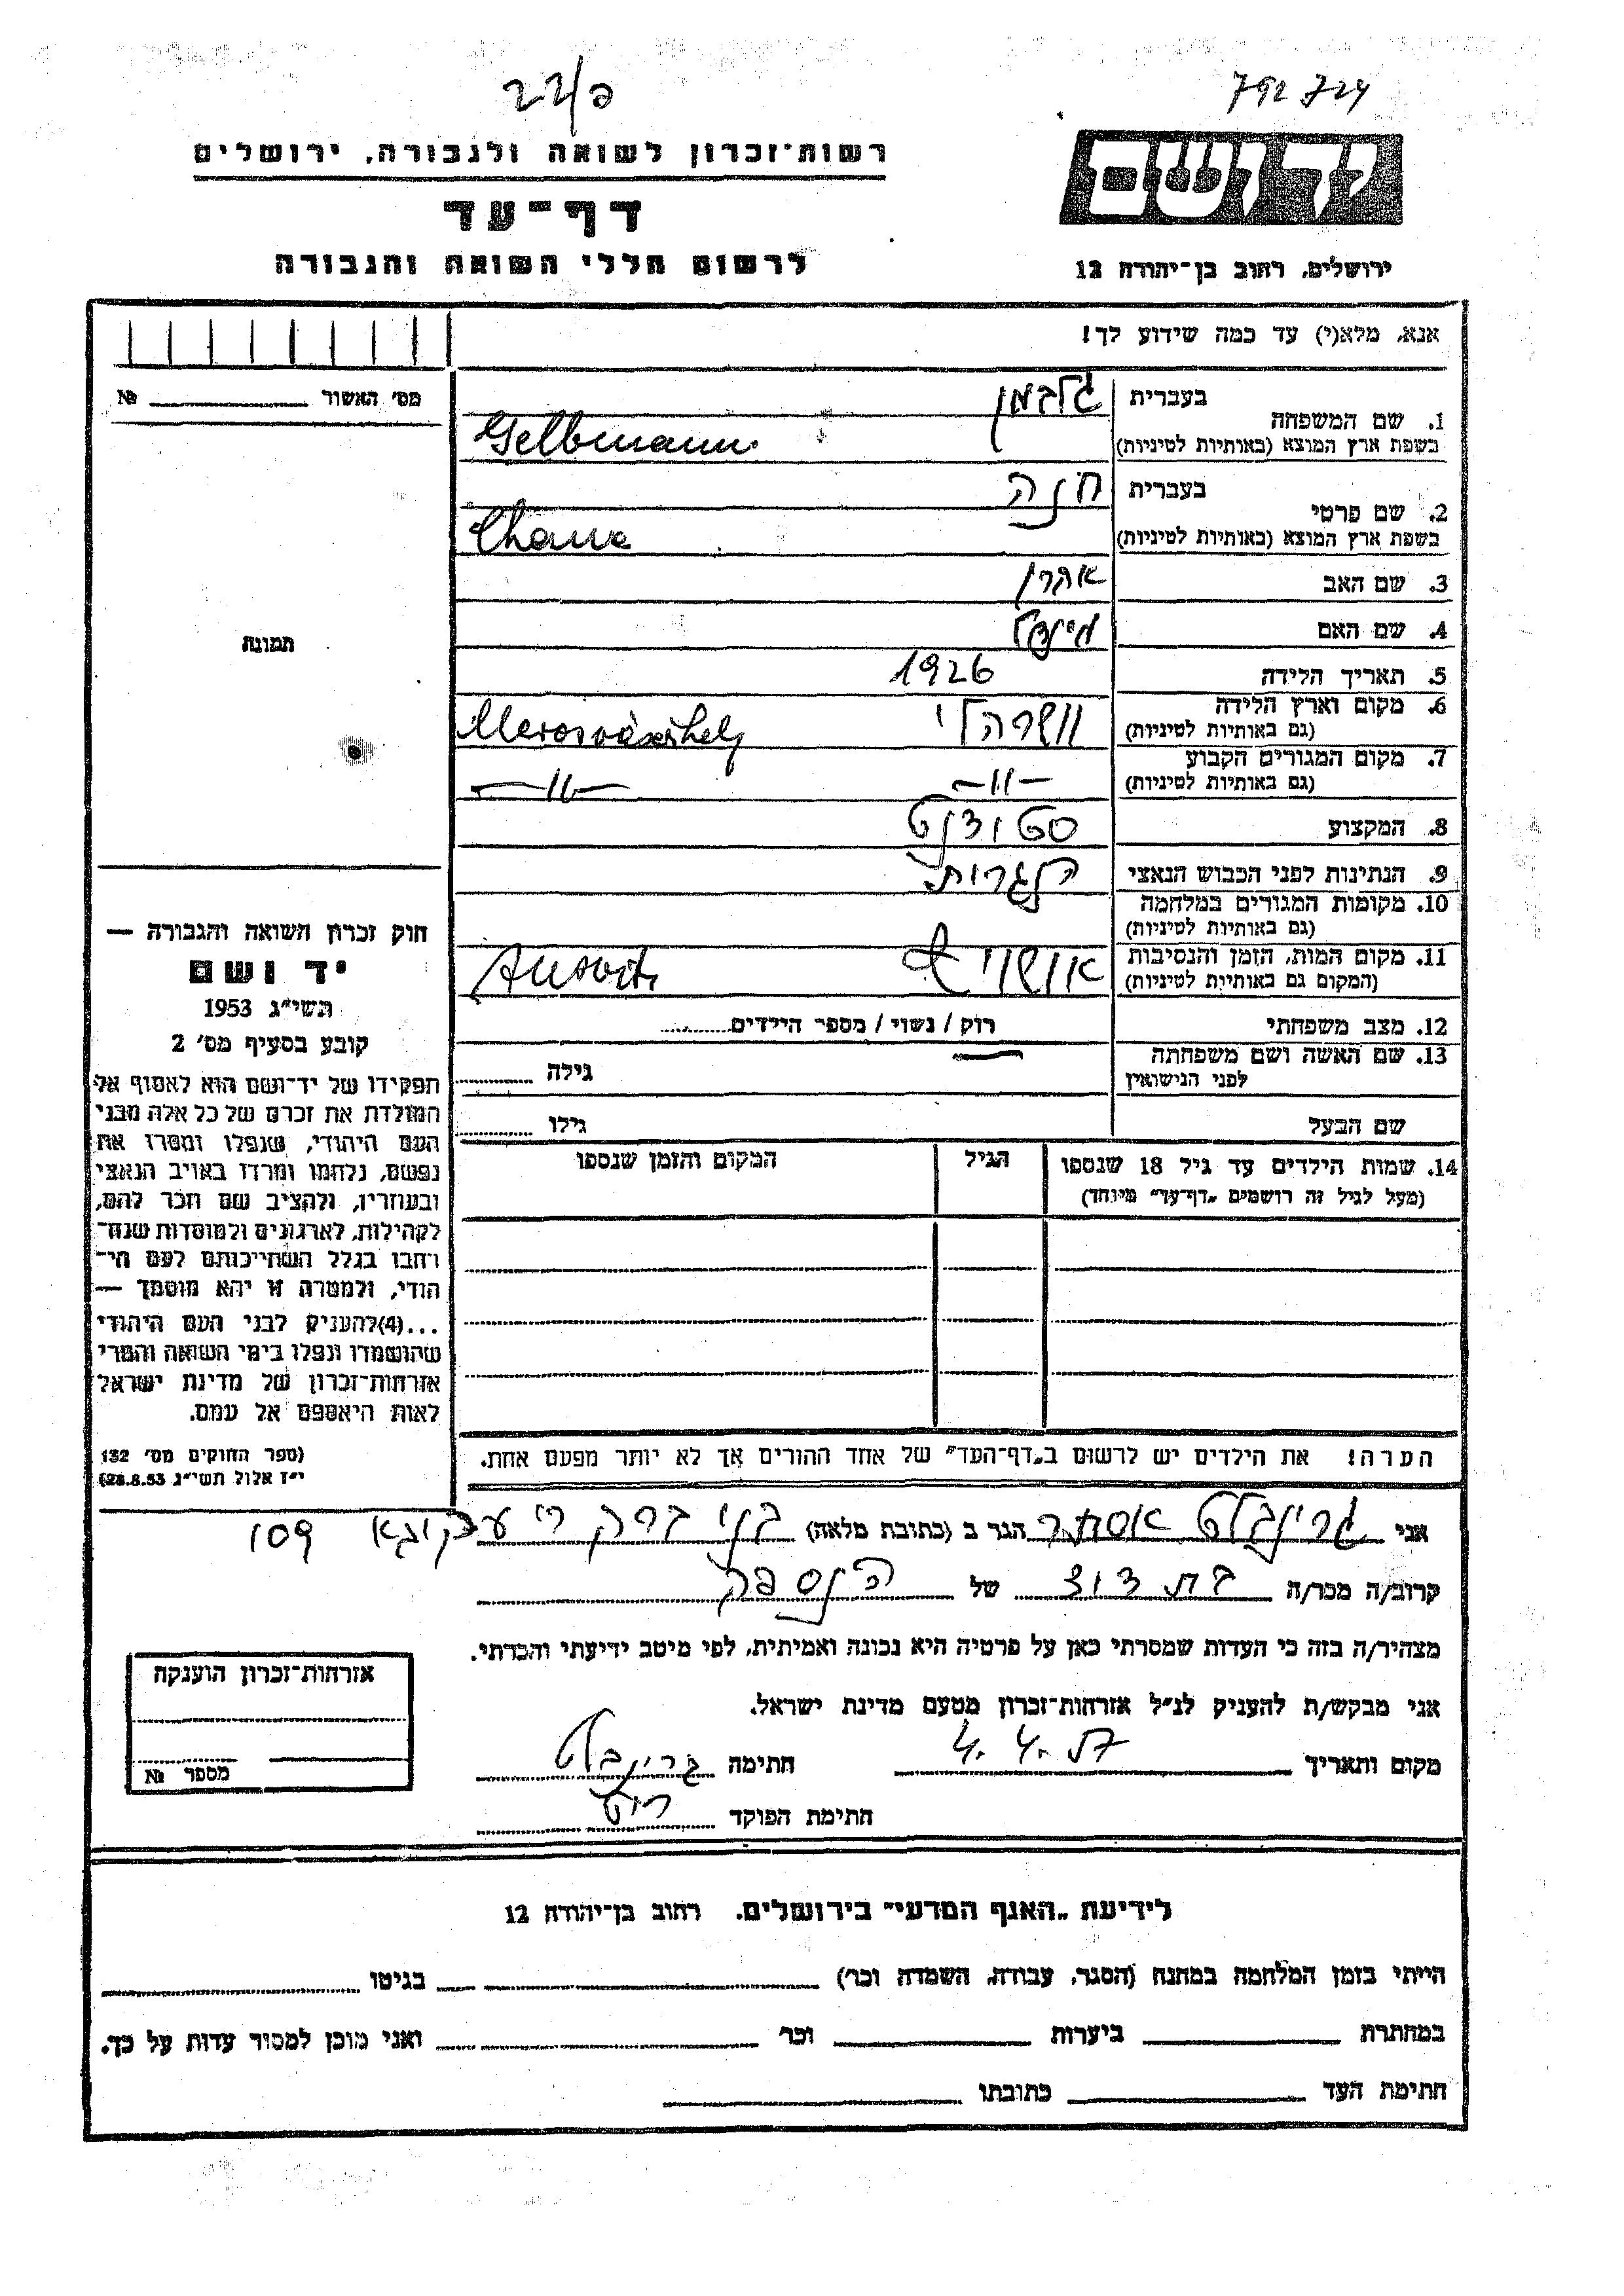 22/פ
792 724
רשות־זכרון לשואה ולגבורה, ירושלים
יד ושם
דף־עד
לרשום חללי השואה והגבורה
ירושלים, רחוב בן־יהודה 12
אנא, מלא(י) עד כמה שידוע לך!
מס׳ האשור № 
1. שם המשפחה
בעברית גלבמן
בשפת ארץ המוצא (באותיות לטיניות) Gelbmann
2. שם פרטי
בעברית חנה
בשפת ארץ המוצא (באותיות לטיניות) Chana
3. שם האב אהרן
4. שם האם
5. תאריך הלידה 1926
6. מקום וארץ הלידה
(גם באותיות לטיניות) וושרהלי Marosvásárhely
7. מקום המגורים הקבוע
(גם באותיות לטיניות) —״— —״—
8. המקצוע סטודנט
9. הנתינות לפני הכבוש הנאצי הנגרית
10. מקומות המגורים במלחמה
(גם באותיות לטיניות)
11. מקום המות, הזמן והנסיבות
(המקום גם באותיות לטיניות) אושויץ
12. מצב משפחתי רוק / נשוי / מספר הילדים
13. שם האשה ושם משפחתה
לפני הנישואין גילה
שם הבעל גילו
14. שמות הילדים עד גיל 18 שנספו
(מעל לגיל זה רושמים „דף־עד״ מיוחד)
הגיל
המקום והזמן שנספו
הערה! את הילדים יש לרשום ב„דף־העד״ של אחד ההורים אך לא יותר מפעם אחת.
תמונה
חוק זכרון השואה והגבורה —
יד ושם
תשי״ג 1953
קובע בסעיף מס׳ 2
תפקידו של יד־ושם הוא לאסוף אל
המולדת את זכרם של כל אלה מבני
העם היהודי, שנפלו ומסרו את
נפשם, נלחמו ומרדו באויב הנאצי
ובעוזריו, ולהציב שם וזכר להם,
לקהילות, לארגונים ולמוסדות שנח־
רבו בגלל השתייכותם לעם הי־
הודי, ולמטרה זו יהא מוסמך —
...(4)להעניק לבני העם היהודי
שהושמדו ונפלו בימי השואה והמרי
אזרחות־זכרון של מדינת ישראל
לאות היאספם אל עמם.
(ספר החוקים מס׳ 132
י״ז אלול תשי״ג 28.8.53)
אני גרינבלט אסתר הגר ב (כתובת מלאה) בני ברק רי עקיבא 109
קרוב/ה מכר/ה בת דוד של הנספה
מצהיר/ה בזה כי העדות שמסרתי כאן על פרטיה היא נכונה ואמיתית, לפי מיטב ידיעתי והכרתי.
אני מבקש/ת להעניק לנ״ל אזרחות־זכרון מטעם מדינת ישראל.
מקום ותאריך 4. 4. 57 חתימה גרינבלט
חתימת הפוקד
אזרחות־זכרון הוענקה
מספר №
לידיעת „האגף המדעי״ בירושלים. רחוב בן־יהודה 12
הייתי בזמן המלחמה במחנה (הסגר, עבודה, השמדה וכו׳) בגיטו
במחתרת ביערות וכו׳ ואני מוכן למסור עדות על כך.
חתימת העד כתובתו